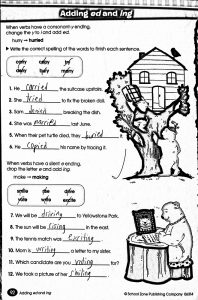 Adding ed and ing
When verbs have a consonant-y ending,
change the y to i and add ed.
hurry — hurried
Write the correct spelling of the words to finish each sentence.
carry copy try
deny bury marry
1. He carried the suitcase upstairs.
2. She tried to fix the broken doll.
3. Sam denied breaking the dish.
4. She was married last June.
5. When their pet turtle died, they buried it.
6. He copied his name by tracing it.
When verbs have a silent e ending,
drop the letter e and add ing.
make → making
smile rise drive
excite vote write
7. We will be driving to Yellowstone Park.
8. The sun will be rising in the east.
9. The tennis match was exciting.
10. Mom is writing a letter to my sister.
11. Which candidate are you voting for?
12. We took a picture of her smiling.
Adding ed and ing
© School Zone Publishing Company